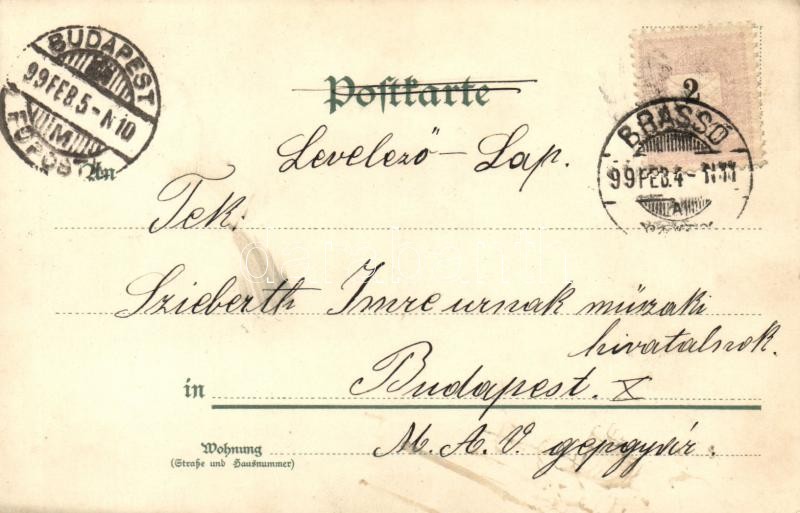 BUDAPEST
99 FEB. 5 - N 10
M
FŐPOSTA
2
BRASSÓ
99 FEB. 4 - N 11
A
Postkarte
Levelező-Lap.
An
Tek:
Szieberth Imre urnak műszaki
hivatalnok.
in
Budapest. X
M. A. V. gepgyár.
Wohnung
(Straße und Hausnummer)